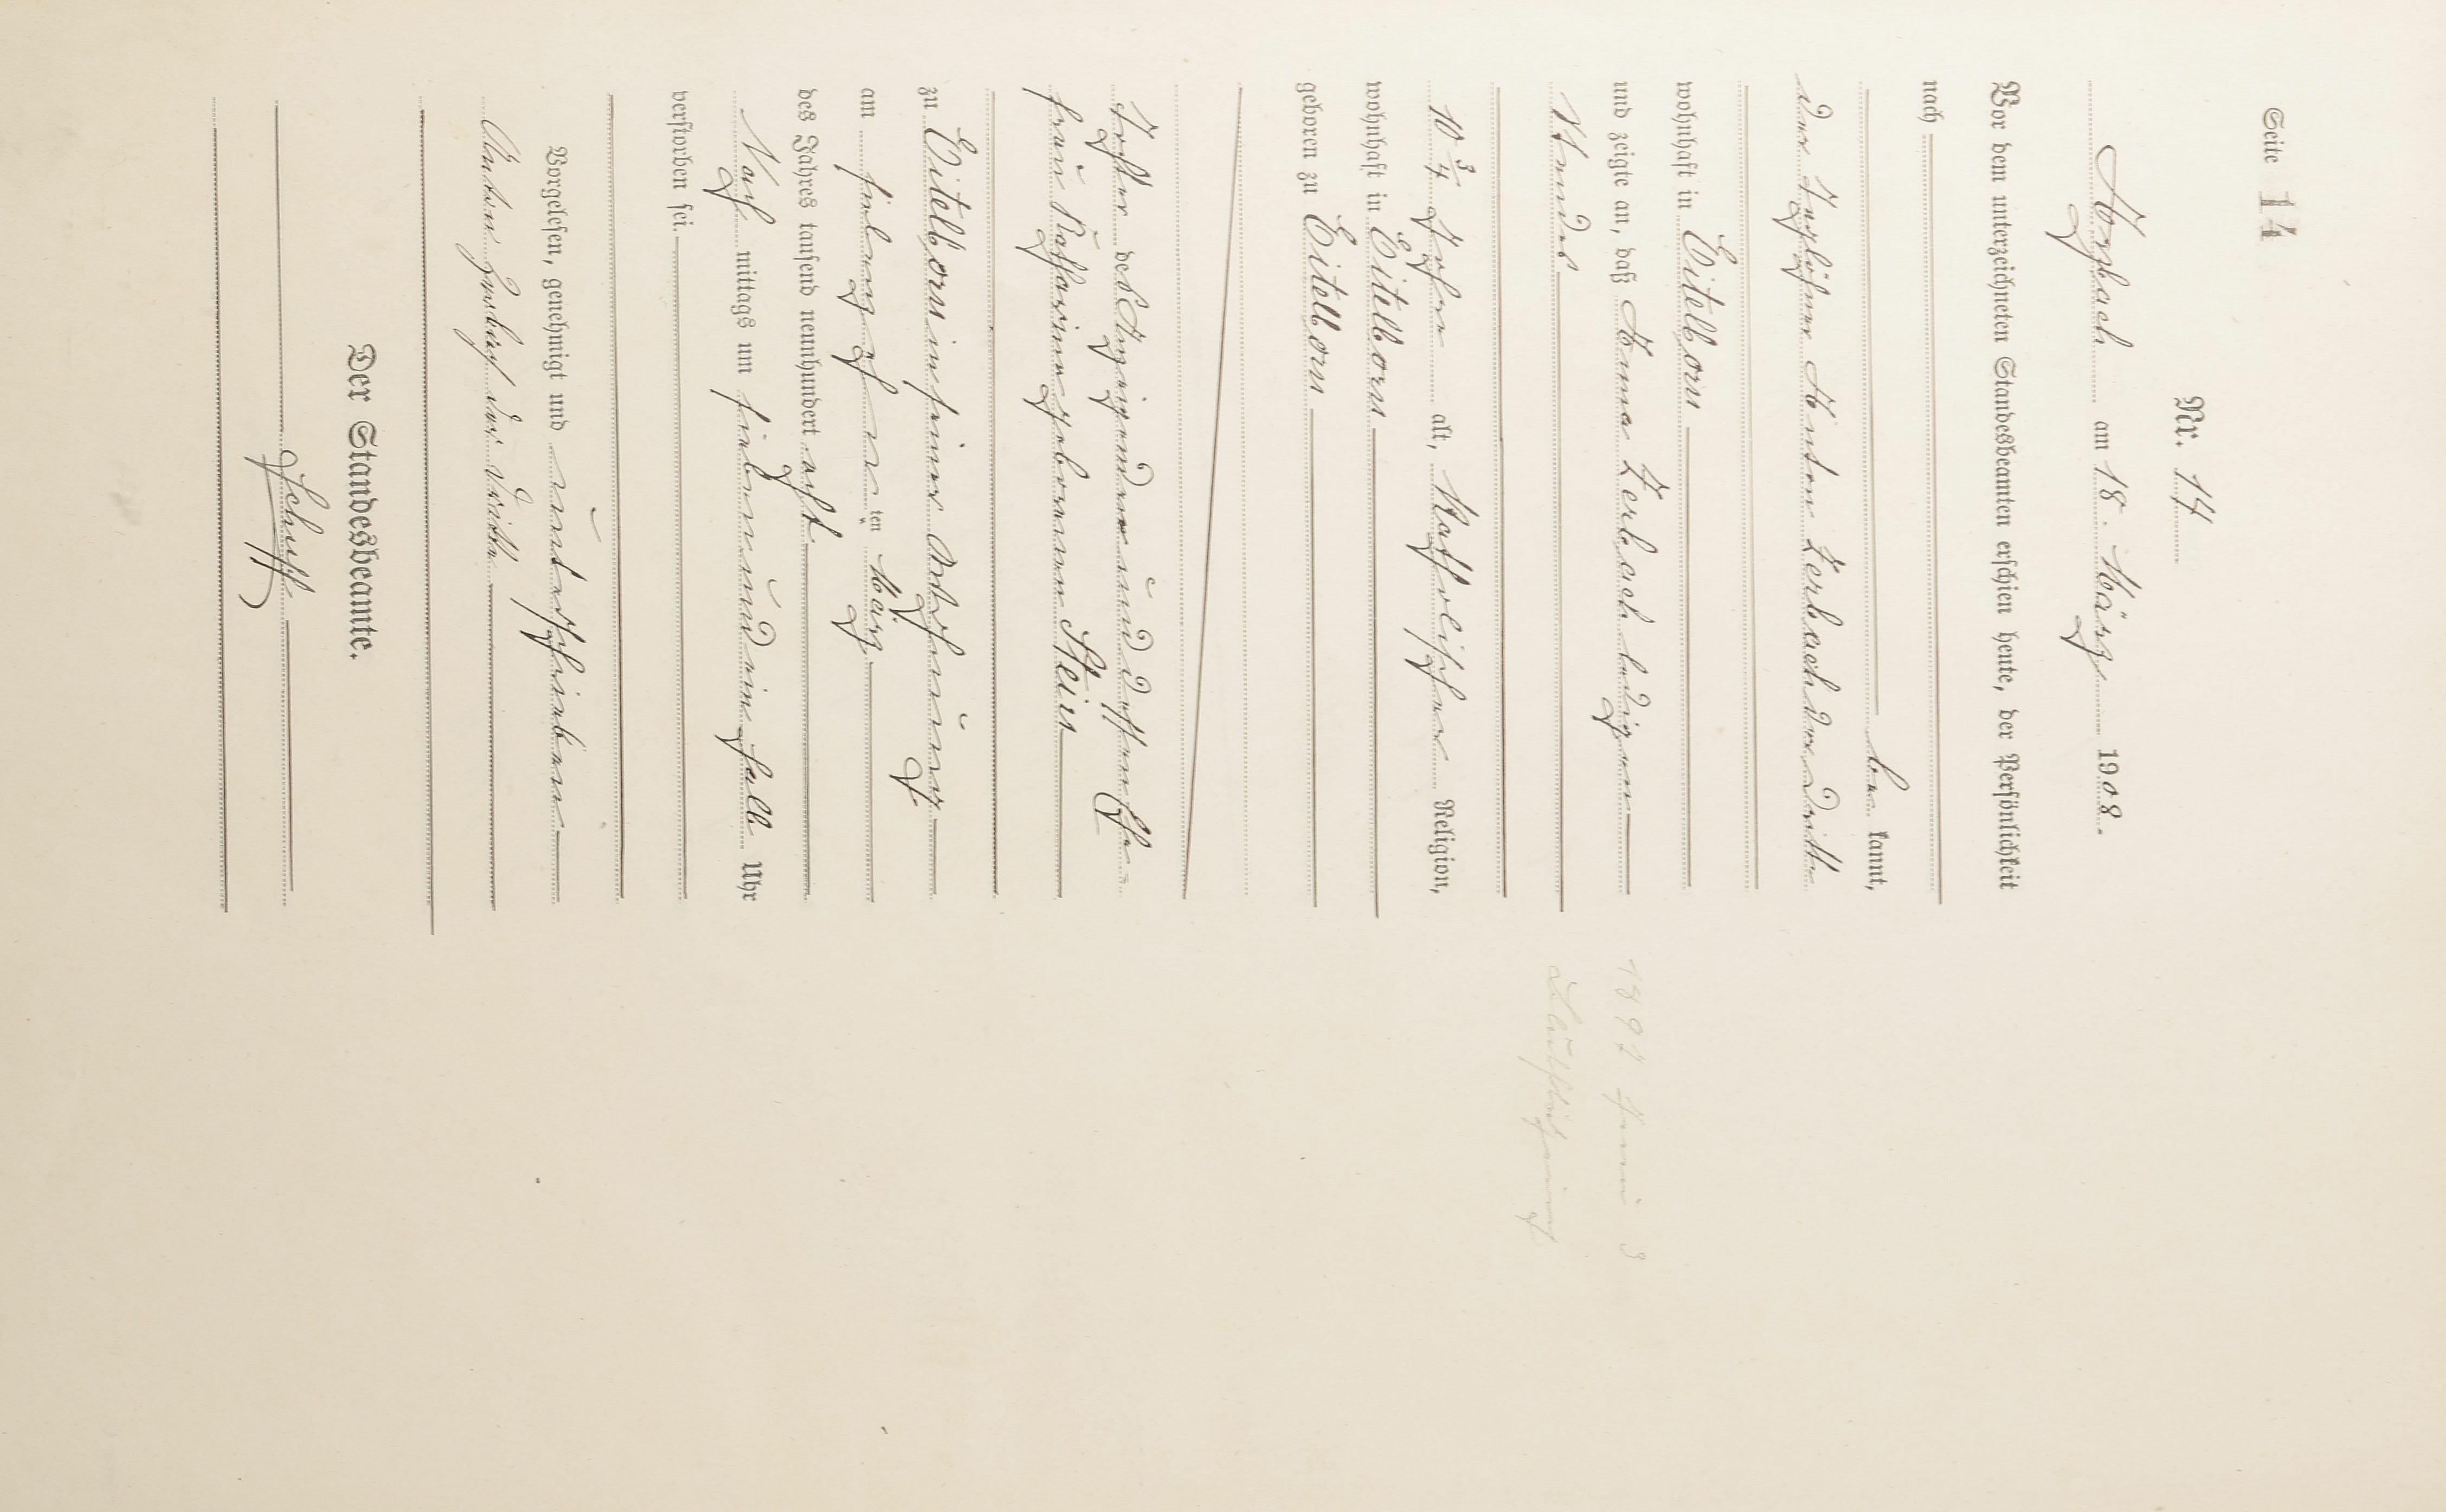 Seite 14
Nr. 14
Arzbach am 18. März 1908.
Vor dem unterzeichneten Standesbeamten erschien heute, der Persönlichkeit
nach
be kannt,
der Taglöhner Anton Zerbach der Dritte
wohnhaft in Eitelborn
und zeigte an, daß Anna Zerbach ledigen
Standes
10 3/4 Jahre alt, katholischer Religion,
wohnhaft in Eitelborn
geboren zu Eitelborn
Tochter des Anzeigenden und dessen Ehe-
frau Katharina geborenen Stein
zu Eitelborn in seiner Wohnung
am siebenzehn ten März
des Jahres tausend neunhundert acht
Nach mittags um sieben und ein halb Uhr
verstorben sei.
Vorgelesen, genehmigt und unterschrieben
Anton Zerbach der dritte
Der Standesbeamte.
Schupp
1897 Juni 3